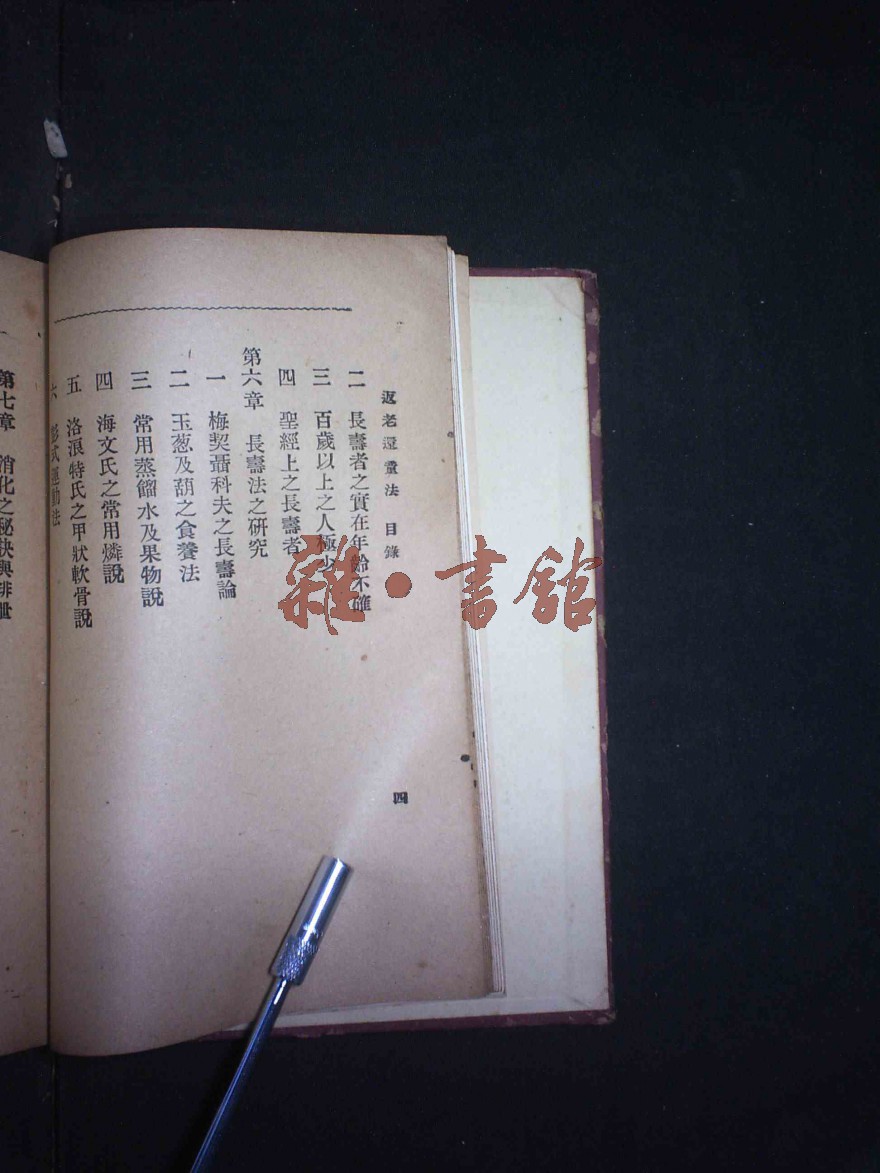 返老還童法 目錄
四
二 長壽者之實在年齡不確
三 百歲以上之人極少
四 聖經上之長壽者
第六章 長壽法之研究
一 梅契聶科夫之長壽論
二 玉葱及葫之食養法
三 常用蒸餾水及果物說
四 海文氏之常用燐說
五 洛浪特氏之甲狀軟骨說
六 彭式運動法
第七章 消化之秘訣與排泄
雜·書館